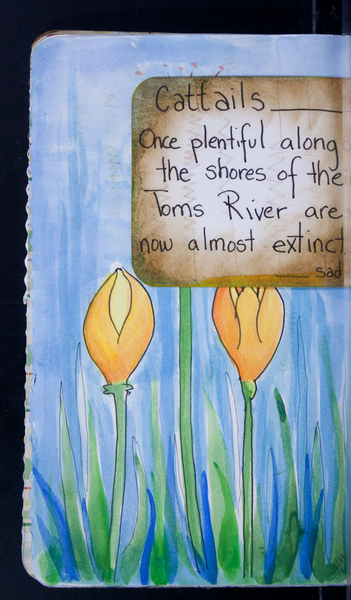 Cattails
Once plentiful along
the shores of the
Toms River are
now almost extinct
sad